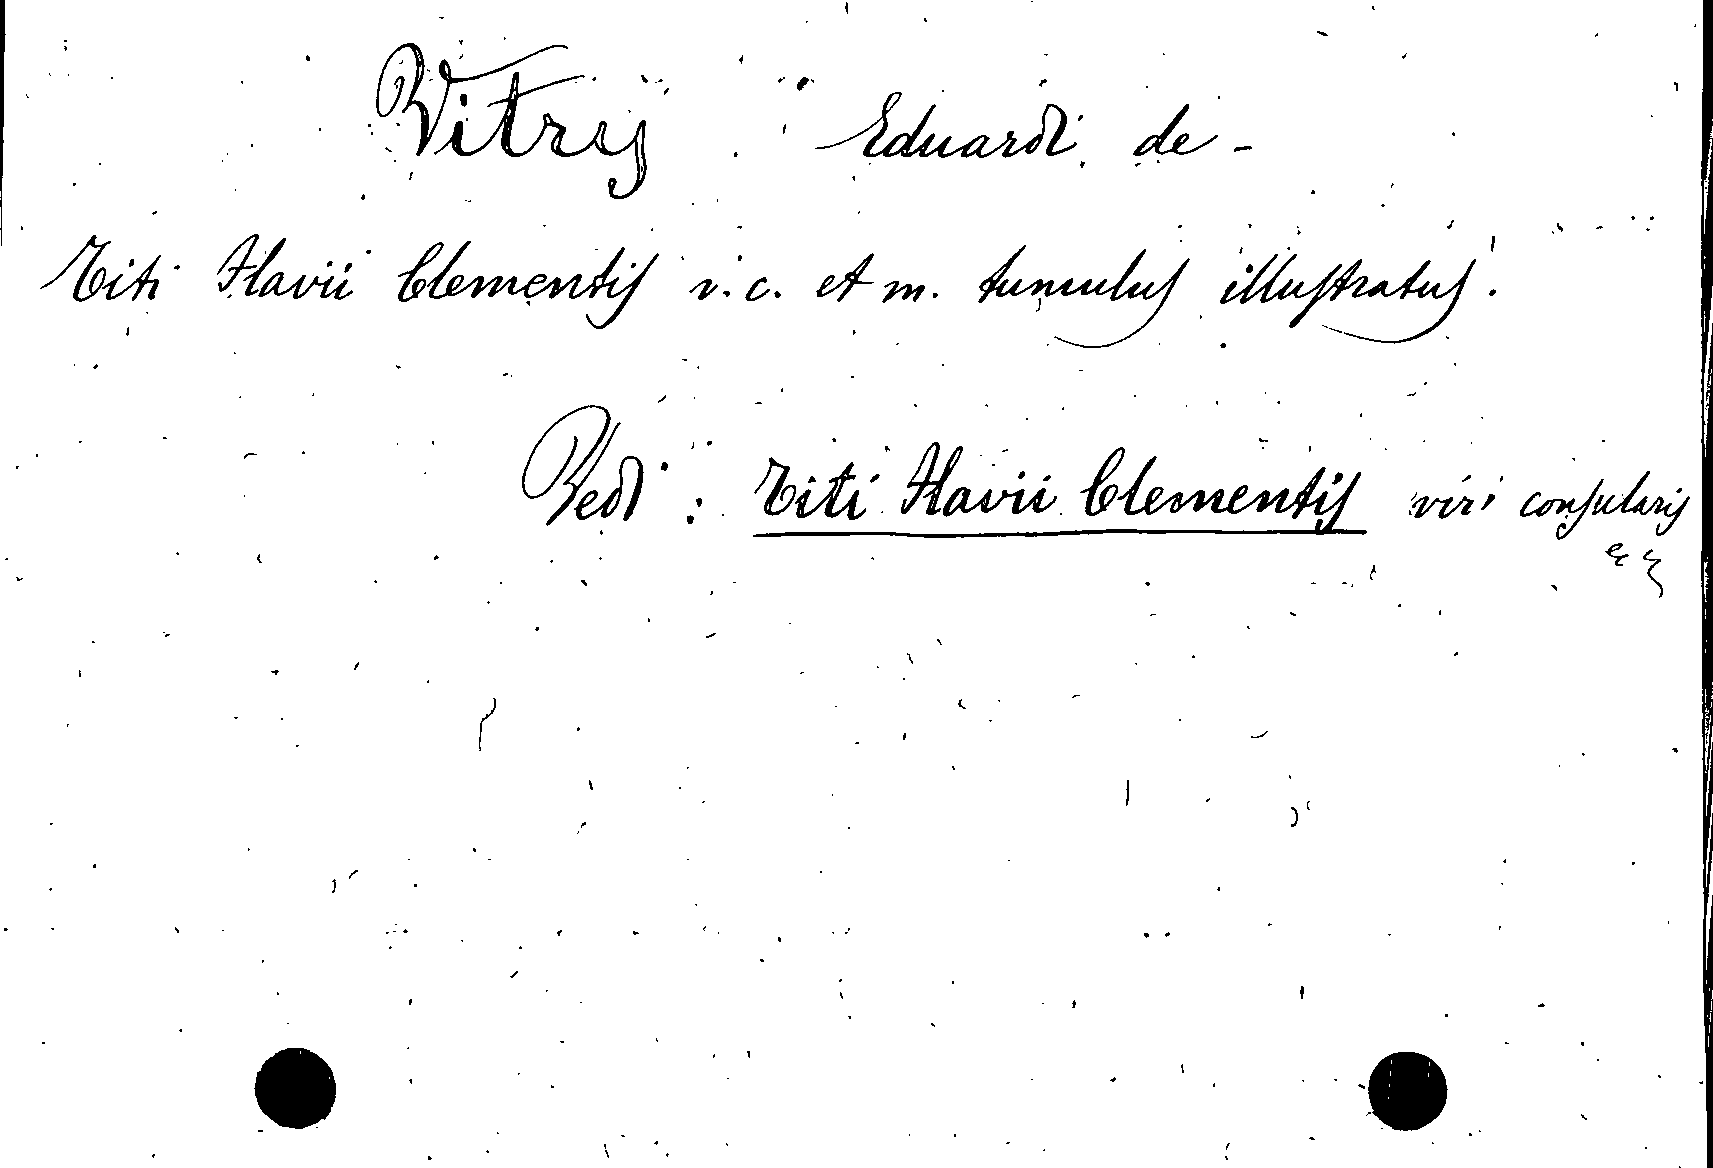 Vitry Eduardi de -
Titi Flavii Clementis v. c. et m. tumulus illustratus.
Vedi: Titi Flavii Clementis viri consularis